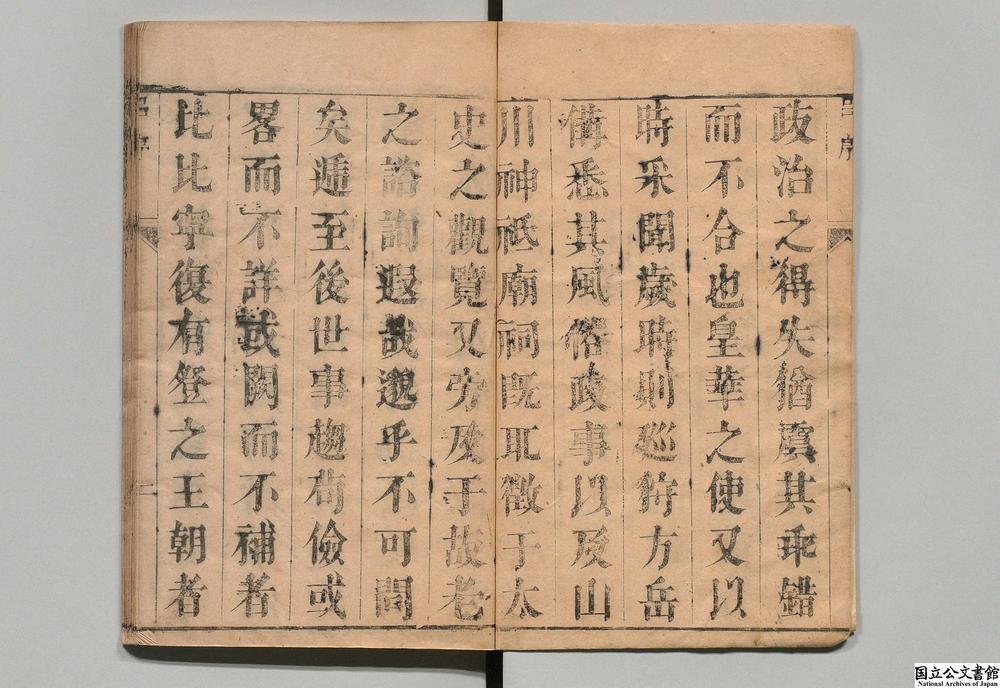 政治之得失猶虞其乖錯
而不合也皇華之使又以
時采聞歲時則巡狩方岳
備悉其風俗政事以及山
川神祗廟祠既耴徵于太
史之觀覽又旁及于故老
之諮詢遐哉邈乎不可聞
矣遞至後世事趨苟儉或
畧而不詳或闕而不補者
比比寧復有登之王朝者
国立公文書館
National Archives of Japan